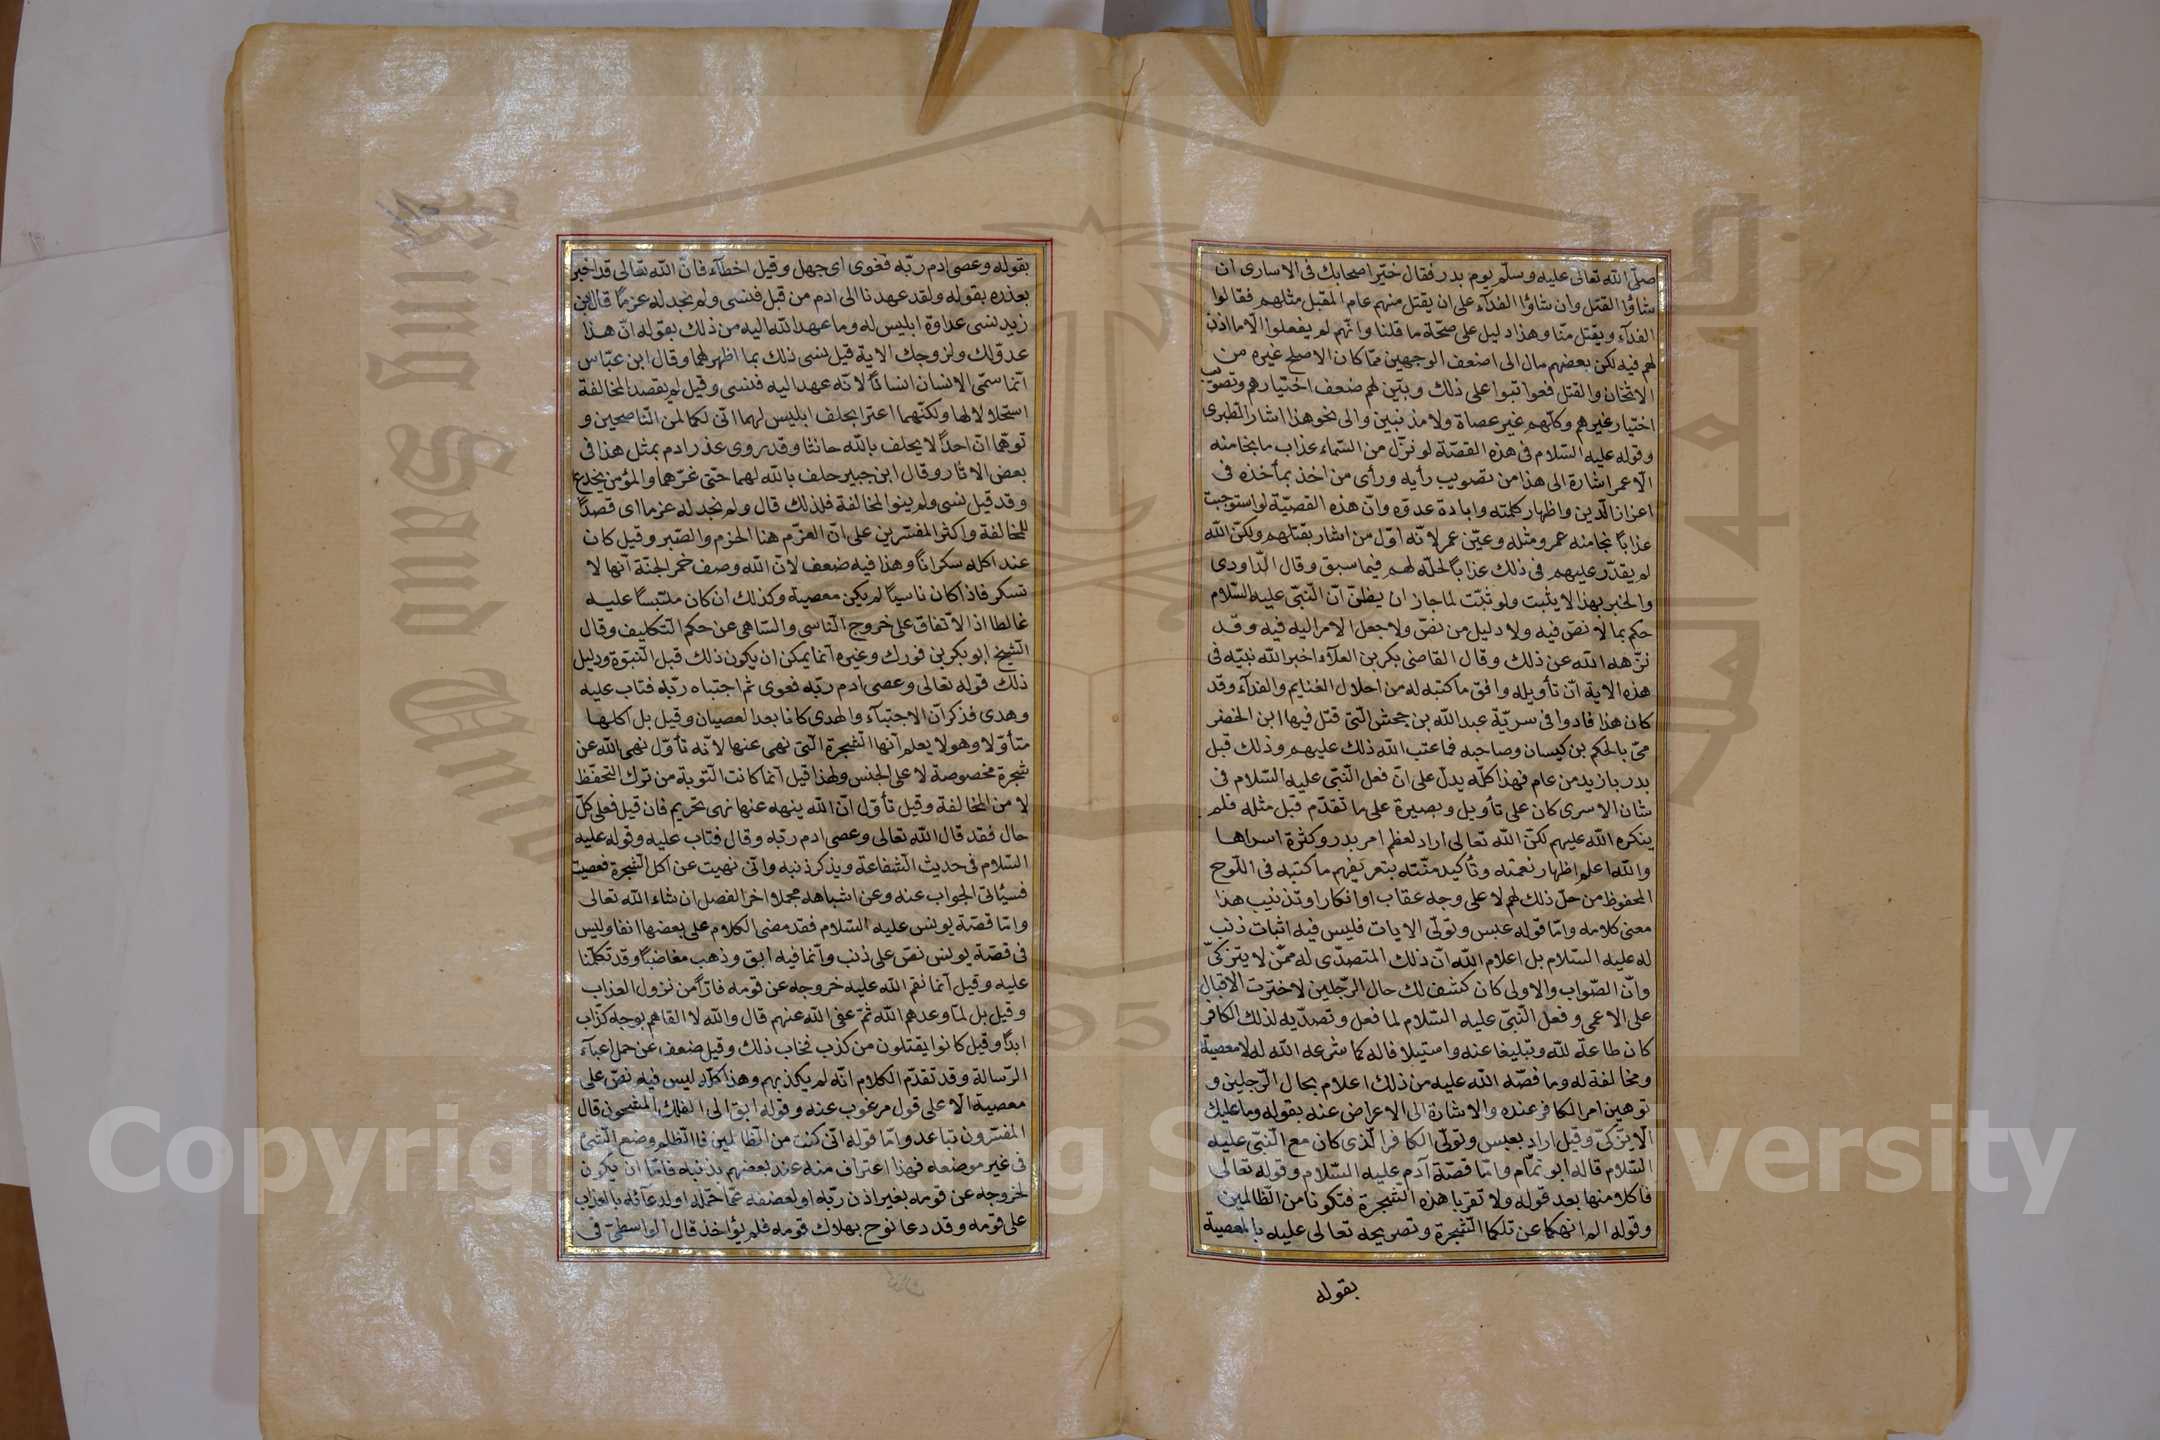 صلّى الله تعالى عليه وسلّم يوم بدر فقال خيّر اصحابك فى الاسارى ان
شاؤا القتل وان شاؤا الفدآء على ان يقتل منهم عام المقبل مثلهم فقالوا
الفدآء ويقتل منّا وهذا دليل على صحّة ما قلنا وانّهم لم يفعلوا الّا ما اذن
لهم فيه لكن بعضهم مال الى اضعف الوجهين ممّا كان الاصلح غيره من
الاثخان والقتل فعوتبوا على ذلك وبيّن لهم ضعف اختيارهم وتصويب
اختيار غيرهم وكلّهم غير عصاة ولا مذنبين والى نحو هذا اشار الطبرى
وقوله عليه السّلام فى هذه القصّة لو نزل من السّماء عذاب ما نجا منه
الّا عمر اشارة الى هذا من تصويب رأيه ورأى من اخذ بمأخذه فى
اعزاز الّدين واظهار كلمته وابادة عدوّه وانّ هذه القضيّة لو استوجبت
عذابًا نجا منه عمر ومثله وعيّن عمر لانّه اوّل من اشار بقتلهم ولكنّ الله
لم يقدّر عليهم فى ذلك عذابًا لحلّه لهم فيما سبق وقال الّداودى
والخبر بهذا لا يثبت ولو ثبت لما جاز ان يظنّ انّ النّبىّ عليه السّلام
حكم بما لا نصّ فيه ولا دليل من نصّ ولا جعل الامر اليه فيه وقد
نزّهه الله عن ذلك وقال القاضى بكر بن العلآء اخبر الله نبيّه فى
هذه الاية انّ تأويله وافق ما كتبه له من احلال الغنايم والفدآء وقد
كان هذا فادوا فى سريّة عبد الله بن جحش الّتى قتل فيها ابن الحضر
مىّ بالحكم بن كيسان وصاحبه فما عتب الله ذلك عليهم وذلك قبل
بدر بازيد من عام فهذا كلّه يدلّ على انّ فعل النّبىّ عليه السّلام فى
شان الاسرى كان على تأويل وبصيرة على ما تقدّم قبل مثله فلم
ينكره الله عليهم لكنّ الله تعالى اراد لعظم امر بدر وكثرة اسراها
والله اعلم اظهار نعمته وتأكيد منّته بتعريفهم ما كتبه فى اللّوح
المحفوظ من حلّ ذلك لهم لا على وجه عقاب او انكار او تذنيب هذا
معنى كلامه وامّا قوله عبس وتولّى الايات فليس فيه اثبات ذنب
له عليه السّلام بل اعلام الله انّ ذلك المتصدّى له ممّن لا يتزكّى
وانّ الصّواب والاولى كان كشف لك حال الرّجلين لاخترت الاقبال
على الاعمى وفعل النّبىّ عليه السّلام لما فعل وتصدّيه لذلك الكافر
كان طاعة لله وتبليغا عنه واستيلافا له كما شرعه الله له لا معصية
ومخالفة له وما قصّه الله عليه من ذلك اعلام بحال الرّجلين و
توهين امر الكافر عنده والاشارة الى الاعراض عنه بقوله وما عليك
الّا يزّكّى وقيل اراد بعبس وتولّى الكافر الّذى كان مع النّبىّ عليه
السّلام قاله ابو تمّام وامّا قصّة آدم عليه السّلام وقوله تعالى
فاكلا منها بعد قوله ولا تقربا هذه الشّجرة فتكونا من الظّالمين
وقوله الم انهكما عن تلكما الشّجرة وتصريحه تعالى عليه بالمعصية
بقوله
بقوله وعصى ادم ربّه فغوى اى جهل وقيل اخطاء فانّ الله تعالى قد اخبر
بعذره بقوله ولقد عهدنا الى ادم من قبل فنسى ولم نجد له عزمًا قال ابن
زيد نسى عداوة ابليس له وما عهد الله اليه من ذلك بقوله انّ هذا
عدوّ لك ولزوجك الاية قيل نسى ذلك بما اظهر لهما وقال ابن عبّاس
انّما سمّى الانسان انسانًا لانّه عهد اليه فنسى وقيل لم يقصد المخالفة
استحلالا لها ولكنّهما اغترا بحلف ابليس لهما انّى لكما لمن النّاصحين و
توهّما انّ احدًا لا يحلف بالله حانثا وقد روى عذر ادم بمثل هذا فى
بعض الاثار وقال ابن جبير حلف بالله لهما حتى غرّهما والمؤمن يخدع
وقد قيل نسى ولم ينو المخالفة فلذلك قال ولم نجد له عزما اى قصدًا
للمخالفة واكثر المفسّرين على انّ العزم هنا الحزم والصّبر وقيل كان
عند اكله سكرانًا وهذا فيه ضعف لانّ الله وصف خمر الجنّة انّها لا
تسكر فاذا كان ناسيًا لم يكن معصية وكذلك ان كان ملتبسًا عليه
غالطا اذ الاتّفاق على خروج النّاسى والسّاهى عن حكم التّكليف وقال
الشّيخ ابو بكر بن فورك وغيره انّما يمكن ان يكون ذلك قبل النّبوّة ودليل
ذلك قوله تعالى وعصى ادم ربّه فغوى ثم اجتباه ربّه فتاب عليه
وهدى فذكر انّ الاجتبآء والهدى كانا بعد العصيان وقيل بل اكلها
متأوّلا وهو لا يعلم انّها الشّجرة الّتى نهى عنها لانّه تأوّل نهى الله عن
شجرة مخصوصة لا على الجنس ولهذا قيل انّما كانت التّوبة من ترك التّحفّظ
لا من المخالفة وقيل تأوّل انّ الله ينهه عنها نهى تحريم فان قيل فعلى كلّ
حال فقد قال الله تعالى وعصى ادم ربّه وقال فتاب عليه وقوله عليه
السّلام فى حديث الشّفاعة ويذكر ذنبه وانّى نهيت عن اكل الشّجرة فعصيت
فسيأتى الجواب عنه وعن اشباهه مجملا اخر الفصل ان شاء الله تعالى
وامّا قصّة يونس عليه السّلام فقد مضى الكلام على بعضها انفا وليس
فى قصّة يونس نصّ على ذنب وانّما فيه ابق وذهب مغاضبًا وقد تكلّمنا
عليه وقيل انّما نقم الله عليه خروجه عن قومه فارًّا من نزول العذاب
وقيل بل لمّا وعدهم الله ثمّ عفى الله عنهم قال والله لا القاهم بوجه كذاب
ابدًا وقيل كانوا يقتلون من كذب نخاب ذلك وقيل ضعف عن حمل اعبآء
الرّسالة وقد تقدّم الكلام انّه لم يكذبهم وهذا كلّه ليس فيه نصّ على
معصية الّا على قول مرغوب عنه وقوله ابق الى الفلك المشحون قال
المفسّرون تباعد وامّا قوله انّى كنت من الظّالمين فالظّلم وضع الشّئ
فى غير موضعه فهذا اعتراف منه عند بعضهم بذنبه فامّا ان يكون
لخروجه عن قومه بغير اذن ربّه او لضعفه عمّا حمّله او لدعآئه بالعذاب
على قومه وقد دعا نوح بهلاك قومه فلم يؤاخذ قال الواسطىّ فى